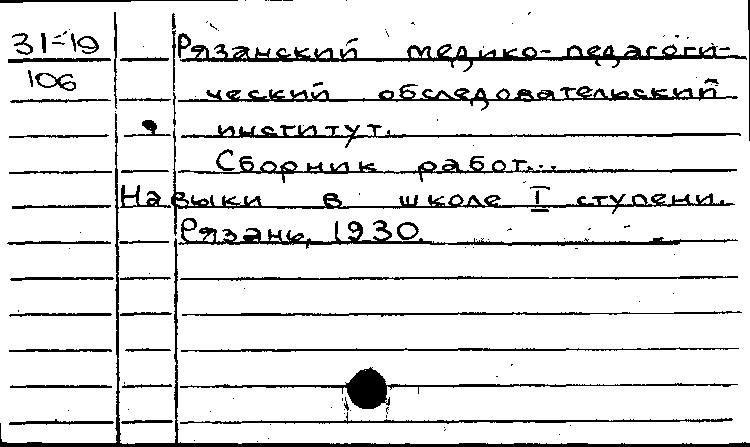 31-19
106
Рязанский медико-педагоги-
ческий обследовательский
институт.
Сборник работ...
Навыки в школе I ступени.
Рязань, 1930.